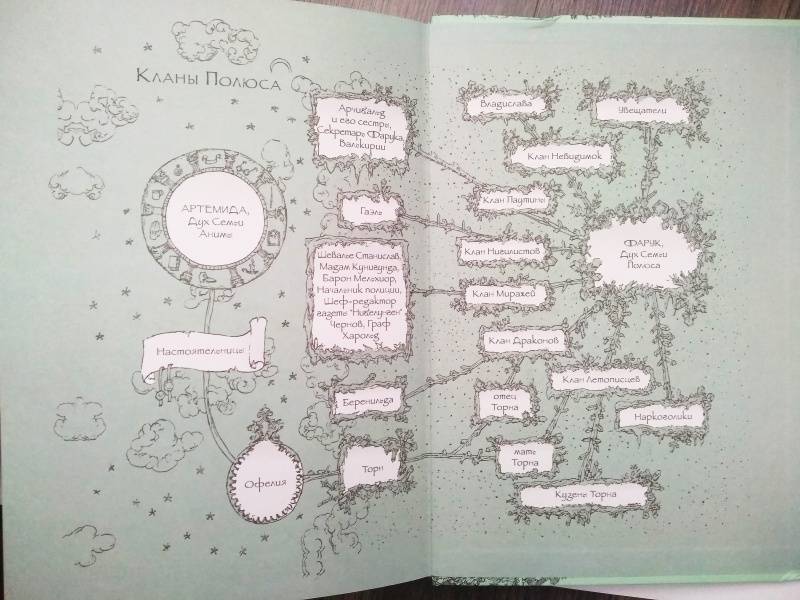 Кланы Полюса
АРТЕМИДА,
Дух Семьи
Анимы
Настоятельницы
Офелия
Арчибальд
и его сестры,
Секретарь Фарука,
Валькирии
Гаэль
Шевалье Станислав,
Мадам Кунигунда,
Барон Мельхиор,
Начальник полиции,
Шеф-редактор
газеты "Нибелунген"
Чернов, Граф
Харольд
Беренильда
Торн
Владислава
Увещатели
Клан Невидимок
Клан Паутины
ФАРУК,
Дух Семьи
Полюса
Клан Нигилистов
Клан Миражей
Клан Драконов
Клан Летописцев
отец
Торна
Наркоголики
мать
Торна
Кузены Торна